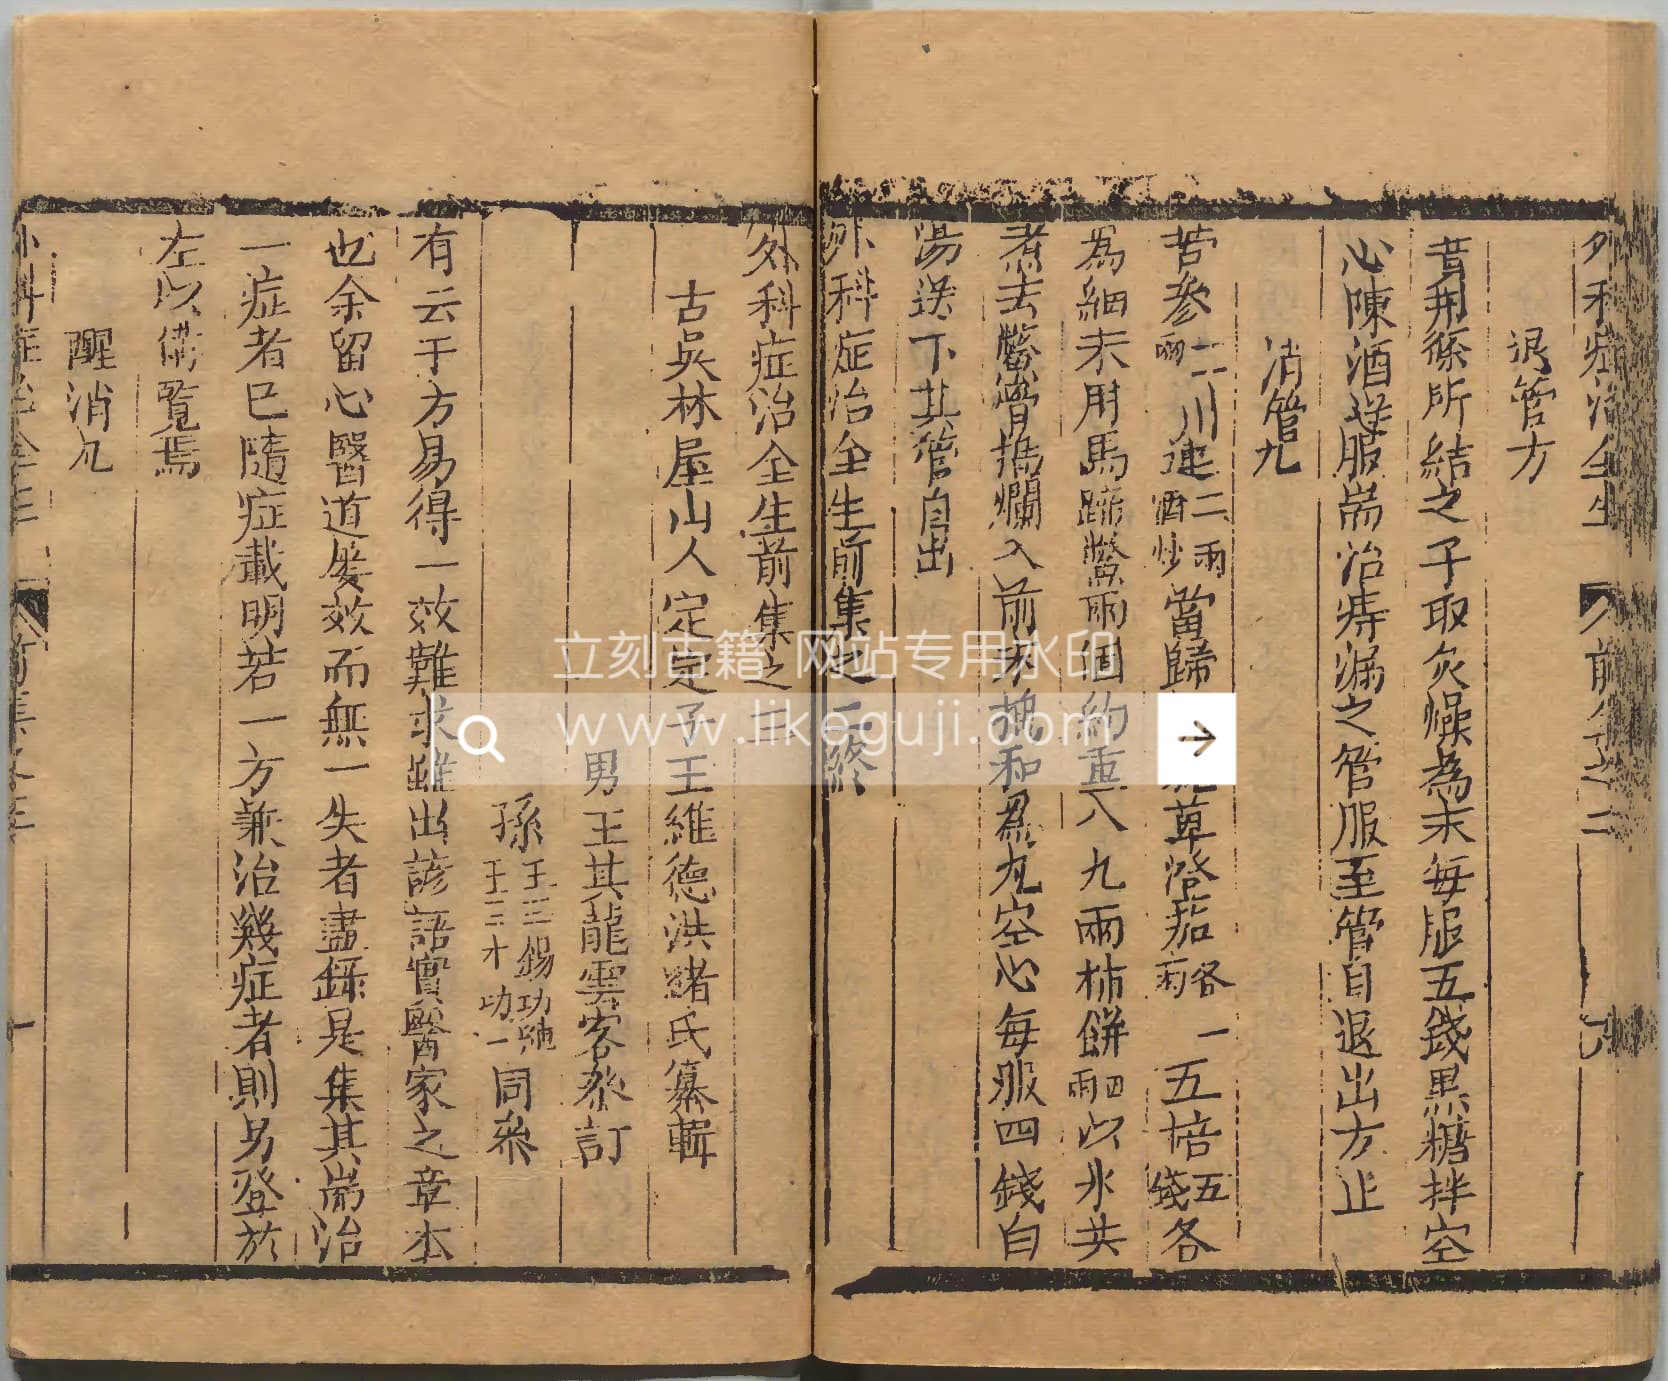 外科症治全生 前集卷二
退管方
昔荆係所結之子取灰燥為末每服五錢黑糖拌空
心陳酒送服耑治痔漏之管服至管自退出方止
消管丸
苦參二兩 川連二兩酒炒 當歸 草澄茄各一兩 五棓五錢各
為細末用馬蹄鱉兩個約重八九兩柿餅四兩以水共
煮去鱉骨搗爛入前末搗和為丸空心每服四錢白
湯送下其管自出
外科症治全生前集之二終
外科症治全生前集之
古吳林屋山人定定子王維德洪緒氏纂輯
男王其龍雲客叅訂
孫王三錫功馳 王三才功一 同叅
有云千方易得一效難求雖出諺語實醫家之章本
也余留心醫道屡效而無一失者盡錄是集其耑治
一症者巳隨症載明若一方兼治幾症者則另登於
左以俻覧焉
醒消丸
外科症治全生 前集卷三 一
立刻古籍 网站专用水印
www.likeguji.com